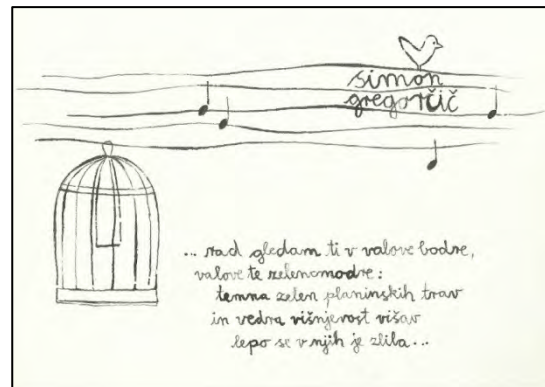 simon
gregorčič
... rad gledam ti v valove bodre,
valove te zelenomodre:
temna zelen planinskih trav
in vedra višnjevost višav
lepo se v njih je zlila...